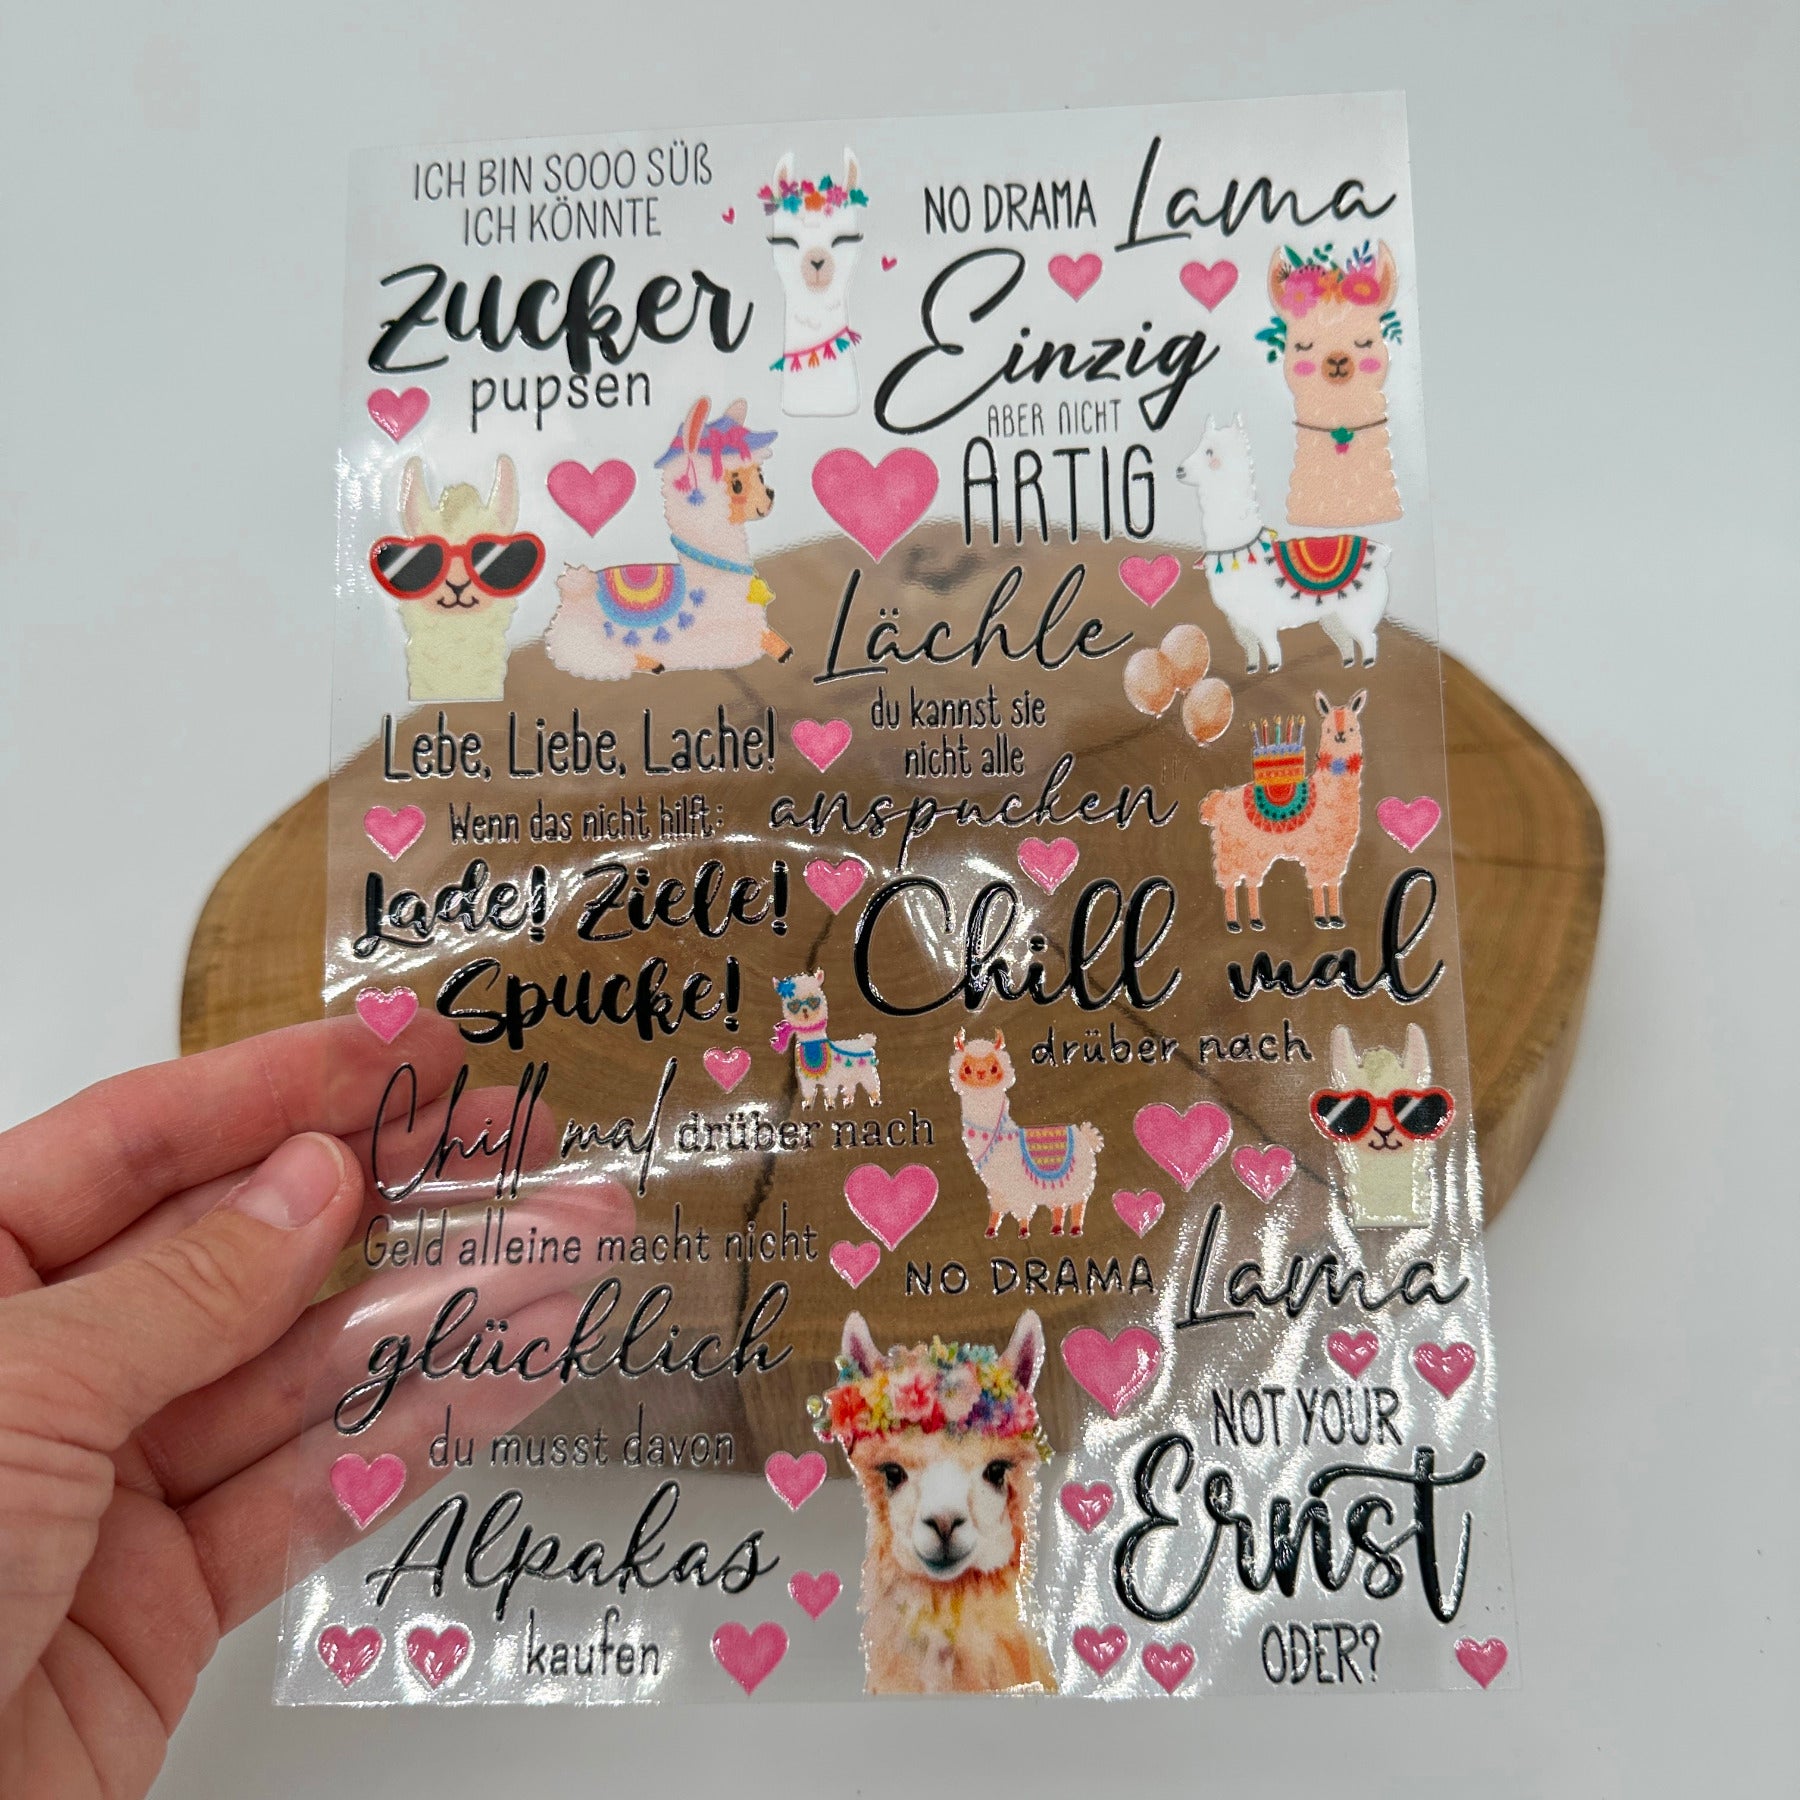 ICH BIN SOOO SÜß
ICH KÖNNTE
Zucker
pupsen
NO DRAMA Lama
Einzig
ABER NICHT
ARTIG
Lächle
du kannst sie
nicht alle
anspucken
Lebe, Liebe, Lache!
Wenn das nicht hilft:
Lade! Ziele!
Spucke!
Chill mal
drüber nach
Chill mal drüber nach
Geld alleine macht nicht
glücklich
du musst davon
Alpakas
kaufen
NO DRAMA Lama
NOT YOUR
Ernst
ODER?